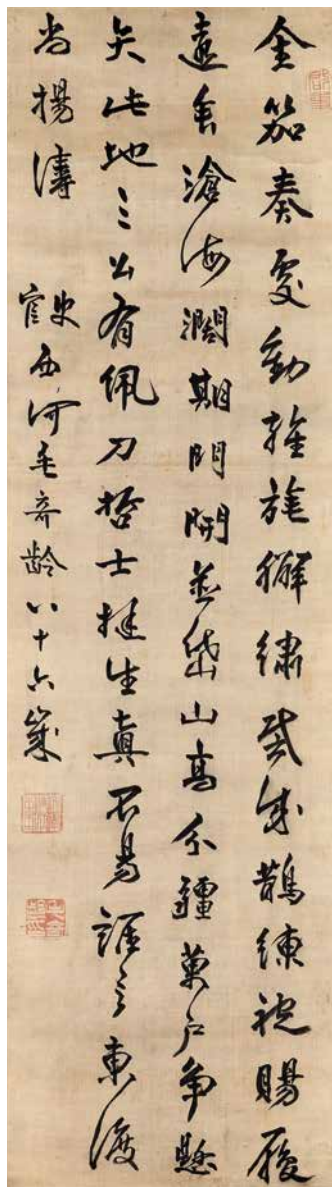 金笳奏處動旌旄獬繡裁成鵲練袍賜履
遠吞滄海濶期門開並岱山高分疆萬戶爭懸
矢此地三公有佩刀哲士挺生真不易誰言東渡
尚揚濤
史官西河毛奇齡八十六歲